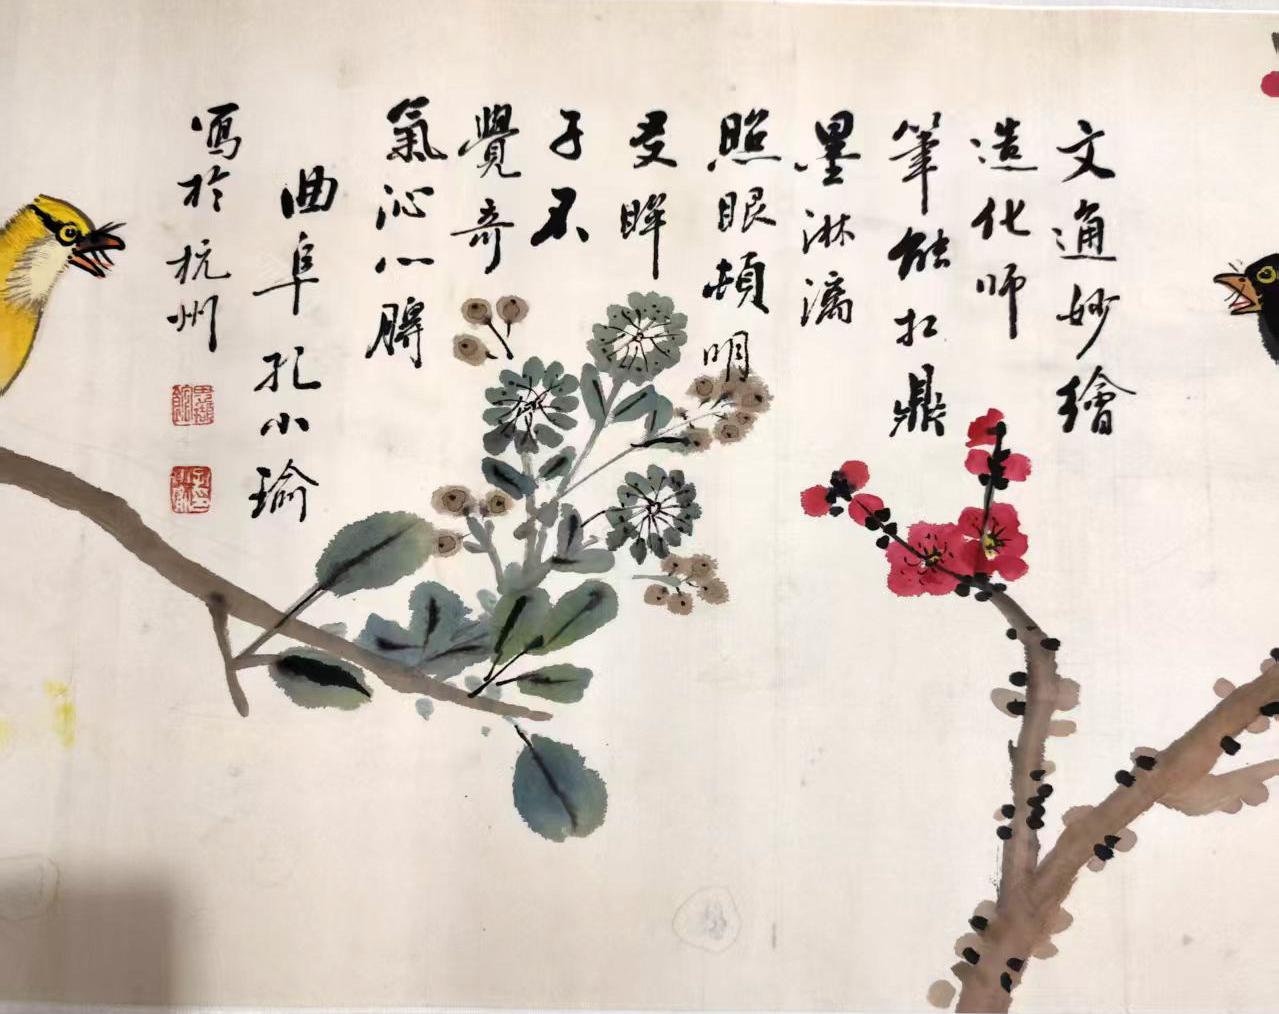 文通妙繪
造化師
筆能扛鼎
墨淋漓
照眼頓明
雙眸
子不
覺奇
氣沁心脾
曲阜孔小瑜
寫於杭州